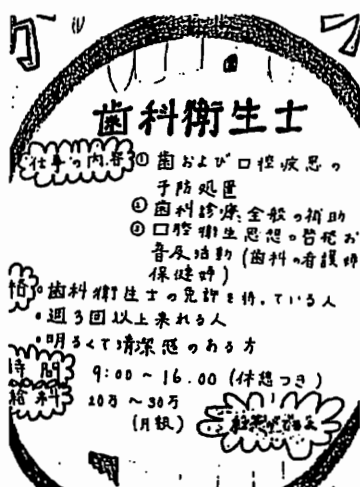 歯科衛生士
仕事の内容 ① 歯および口腔疾患の
予防処置
② 歯科診療全般の補助
③ 口腔衛生思想の啓発お
普及活動（歯科の看護婦
保健婦）
・歯科衛生士の免許を持っている人
・週3回以上来れる人
・明るくて清潔感のある方
時間 9:00～16.00（休憩つき）
給料 20万～30万
（月収）